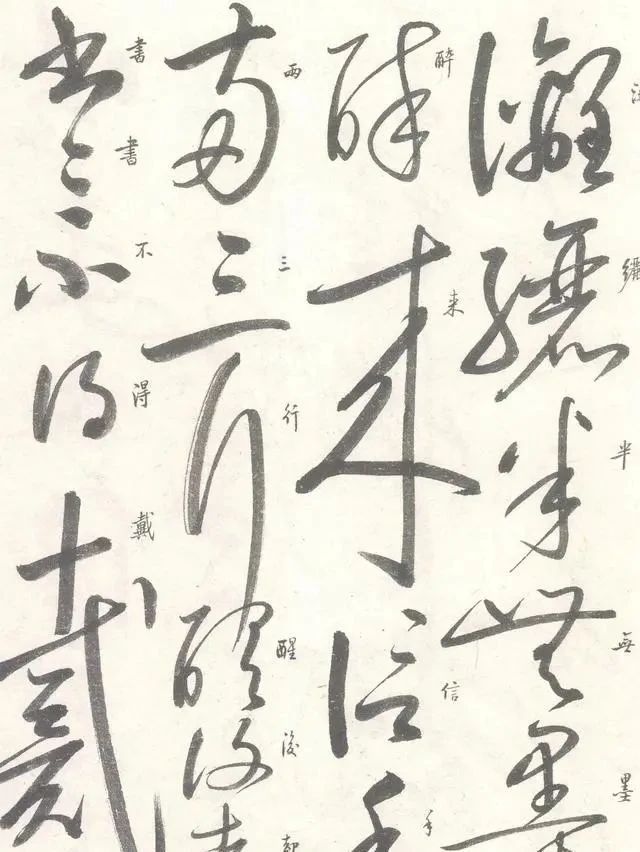 灕纚半無墨
醉来信手
兩三行醒後却
書書不得戴